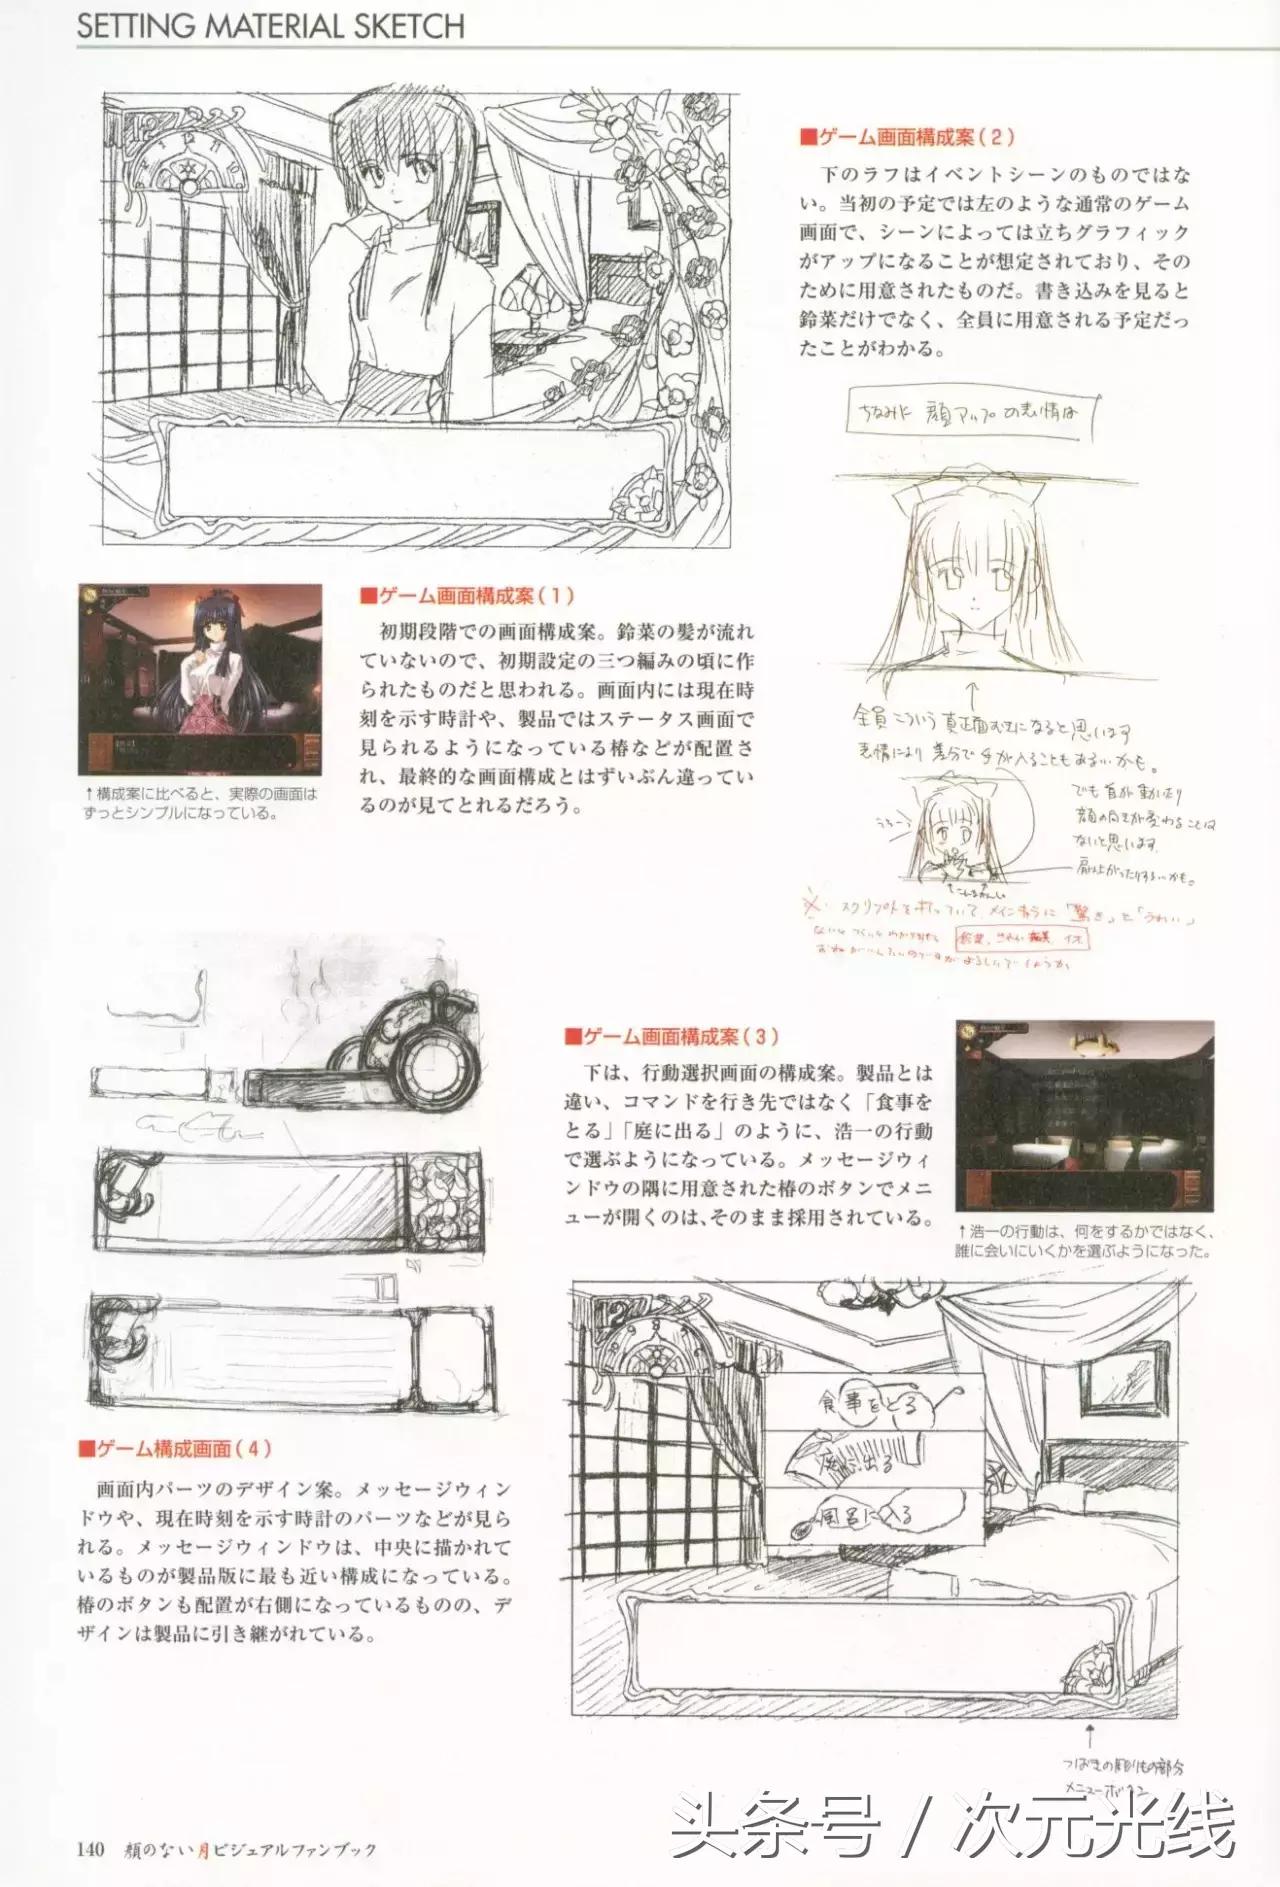 SETTING MATERIAL SKETCH
■ゲーム画面構成案(2)
下のラフはイベントシーンのものではな
い。当初の予定では左のような通常のゲーム
画面で、シーンによっては立ちグラフィック
がアップになることが想定されており、その
ために用意されたものだ。書き込みを見ると
鈴菜だけでなく、全員に用意される予定だっ
たことがわかる。
ちなみに 顔アップの表情は
全員こういう真正面むきになると思います
表情により差分で手が入ることもあるかも。
でも首が動いたり
顔の向きが変わることは
ないと思います
肩は上がったりするかも。
■ゲーム画面構成案(1)
初期段階での画面構成案。鈴菜の髪が流れ
ていないので、初期設定の三つ編みの頃に作
られたものだと思われる。画面内には現在時
刻を示す時計や、製品ではステータス画面で
見られるようになっている椿などが配置さ
れ、最終的な画面構成とはずいぶん違ってい
るのが見てとれるだろう。
↑構成案に比べると、実際の画面は
ずっとシンプルになっている。
■ゲーム画面構成案(3)
下は、行動選択画面の構成案。製品とは
違い、コマンドを行き先ではなく「食事を
とる」「庭に出る」のように、浩一の行動
で選ぶようになっている。メッセージウィ
ンドウの隅に用意された椿のボタンでメニ
ューが開くのは、そのまま採用されている。
↑浩一の行動は、何をするかではなく、
誰に会いにいくかを選ぶようになった。
12
食事をとる
庭に出る
風呂に入る
つばきの彫りもの部分
メニューボタン
■ゲーム構成画面(4)
画面内パーツのデザイン案。メッセージウィン
ドウや、現在時刻を示す時計のパーツなどが見ら
れる。メッセージウィンドウは、中央に描かれて
いるものが製品版に最も近い構成になっている。
椿のボタンも配置が右側になっているものの、デ
ザインは製品に引き継がれている。
140 顔のない月ビジュアルファンブック
头条号 / 次元光线